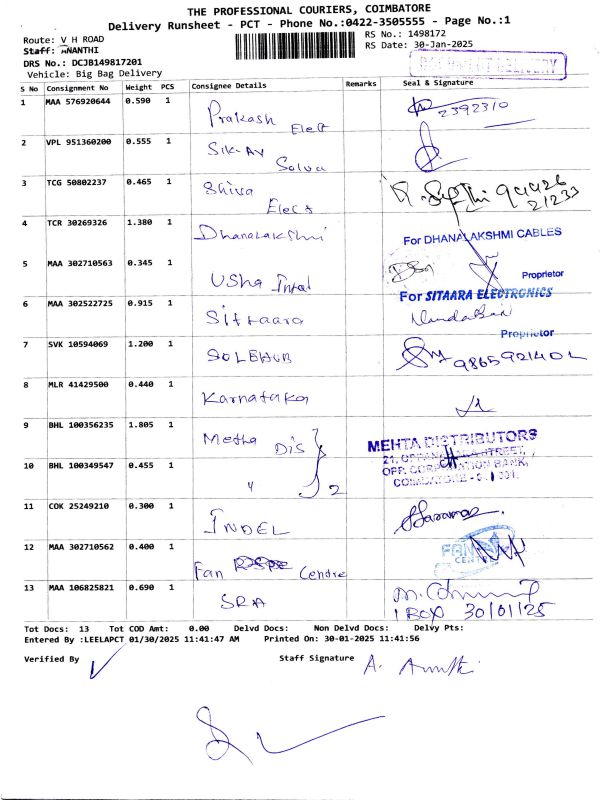 THE PROFESSIONAL COURIERS, COIMBATORE
Delivery Runsheet - PCT - Phone No.:0422-3505555 - Page No.:1
Route: V H ROAD
RS No.: 1498172
Staff: ANANTHI
RS Date: 30-Jan-2025
DRS No.: DCJB149817201
Vehicle: Big Bag Delivery
DELIVERY
S No Consignment No Weight PCS Consignee Details Remarks Seal & Signature
1 MAA 576920644 0.590 1 Prakash Elect 2392310
2 VPL 951360200 0.555 1 Solva
3 TCG 50802237 0.465 1 Shiva Elect 94426 21233
4 TCR 30269326 1.380 1 Dhanalakshmi For DHANALAKSHMI CABLES
Proprietor
5 MAA 302710563 0.345 1 Usha
For SITAARA ELECTRONICS
6 MAA 302522725 0.915 1 Sittaara
Proprietor
7 SVK 10594069 1.200 1 SOLEHUB
8 MLR 41429500 0.440 1 Karnataka
9 BHL 100356235 1.805 1 Metha Dis MEHTA DISTRIBUTORS
10 BHL 100349547 0.455 1 " 2 OPP. CORPORATION BANK,
COIMBATORE
11 COK 25249210 0.300 1 INDEL
12 MAA 302710562 0.400 1 Fan Centre FAN CENTRE
13 MAA 106825821 0.690 1 SRA
1 BOX 30/01/25
Tot Docs: 13 Tot COD Amt: 0.00 Delvd Docs: Non Delvd Docs: Delvy Pts:
Entered By :LEELAPCT 01/30/2025 11:41:47 AM Printed On: 30-01-2025 11:41:56
Verified By Staff Signature